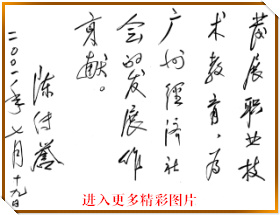 發展职业技
术教育，为
广州經济社
会的发展作
贡献。
陈传誉
二〇〇一年七月十九日
进入更多精彩图片